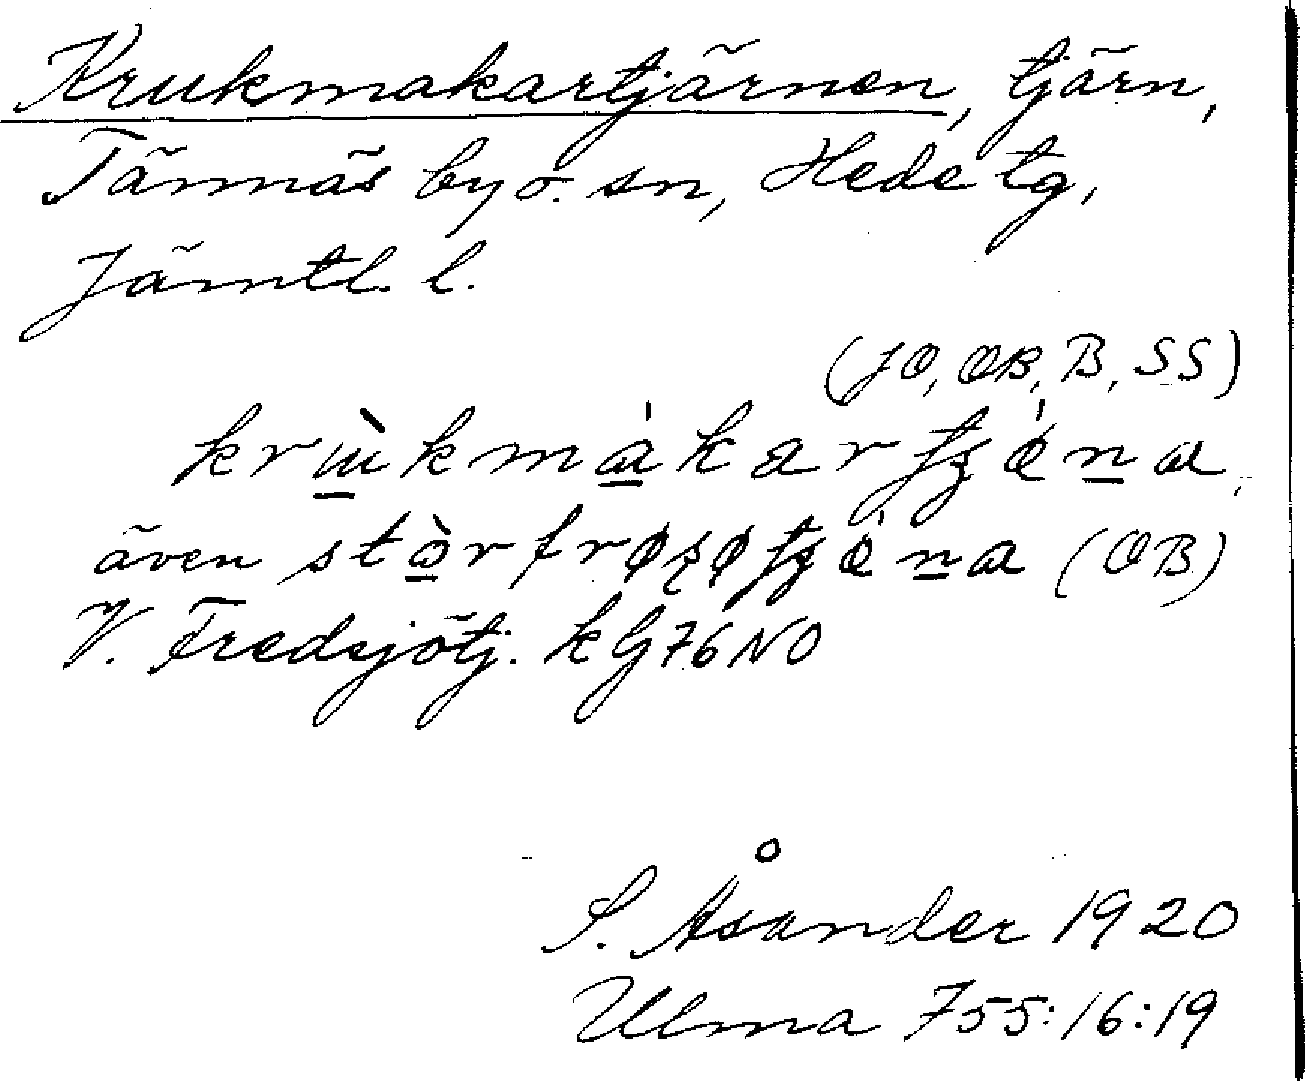 Krukmakartjärnen, tjärn,
Tännäs by o. sn, Hede tg,
Jämtl. l.
(JO, OB, B, SS)
krùkmákartjǿna,
även stòrfrøsøtjǿna (OB)
V. Fredsjötj. kG76NO
S. Åsander 1920
Ulma 755:16:19